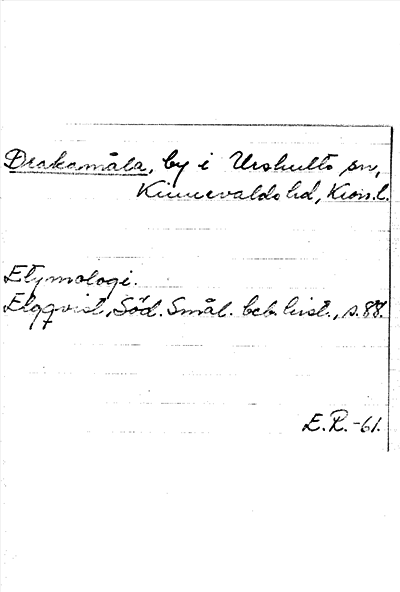 Drakamåla, by i Urshults sn,
Kinnevalds hd, Kron.l.
Etymologi.
Elqqvist, Söd. Smål. beb. hist., s. 88.
E.R.-61.